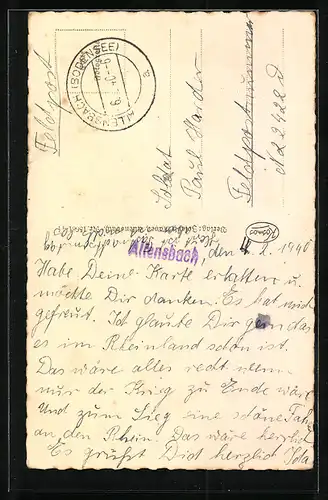 Feldpost
ALLENSBACH (BODENSEE)
Soldat
Paul Harder
Feldpostnummer
No 22422 D
Allensbach, den 4. 2. 1940
Habe Deine Karte erhalten u.
möchte Dir danken. Es hat mich
gefreut. Ich glaube Dir gern das
es im Rheinland schön ist.
Das wäre alles recht wenn
nur der Krieg zu Ende wäre
Und zum Sieg eine schöne Fahrt
an den Rhein. Das wäre herrlich
Es grüßt Dich herzlich Ida